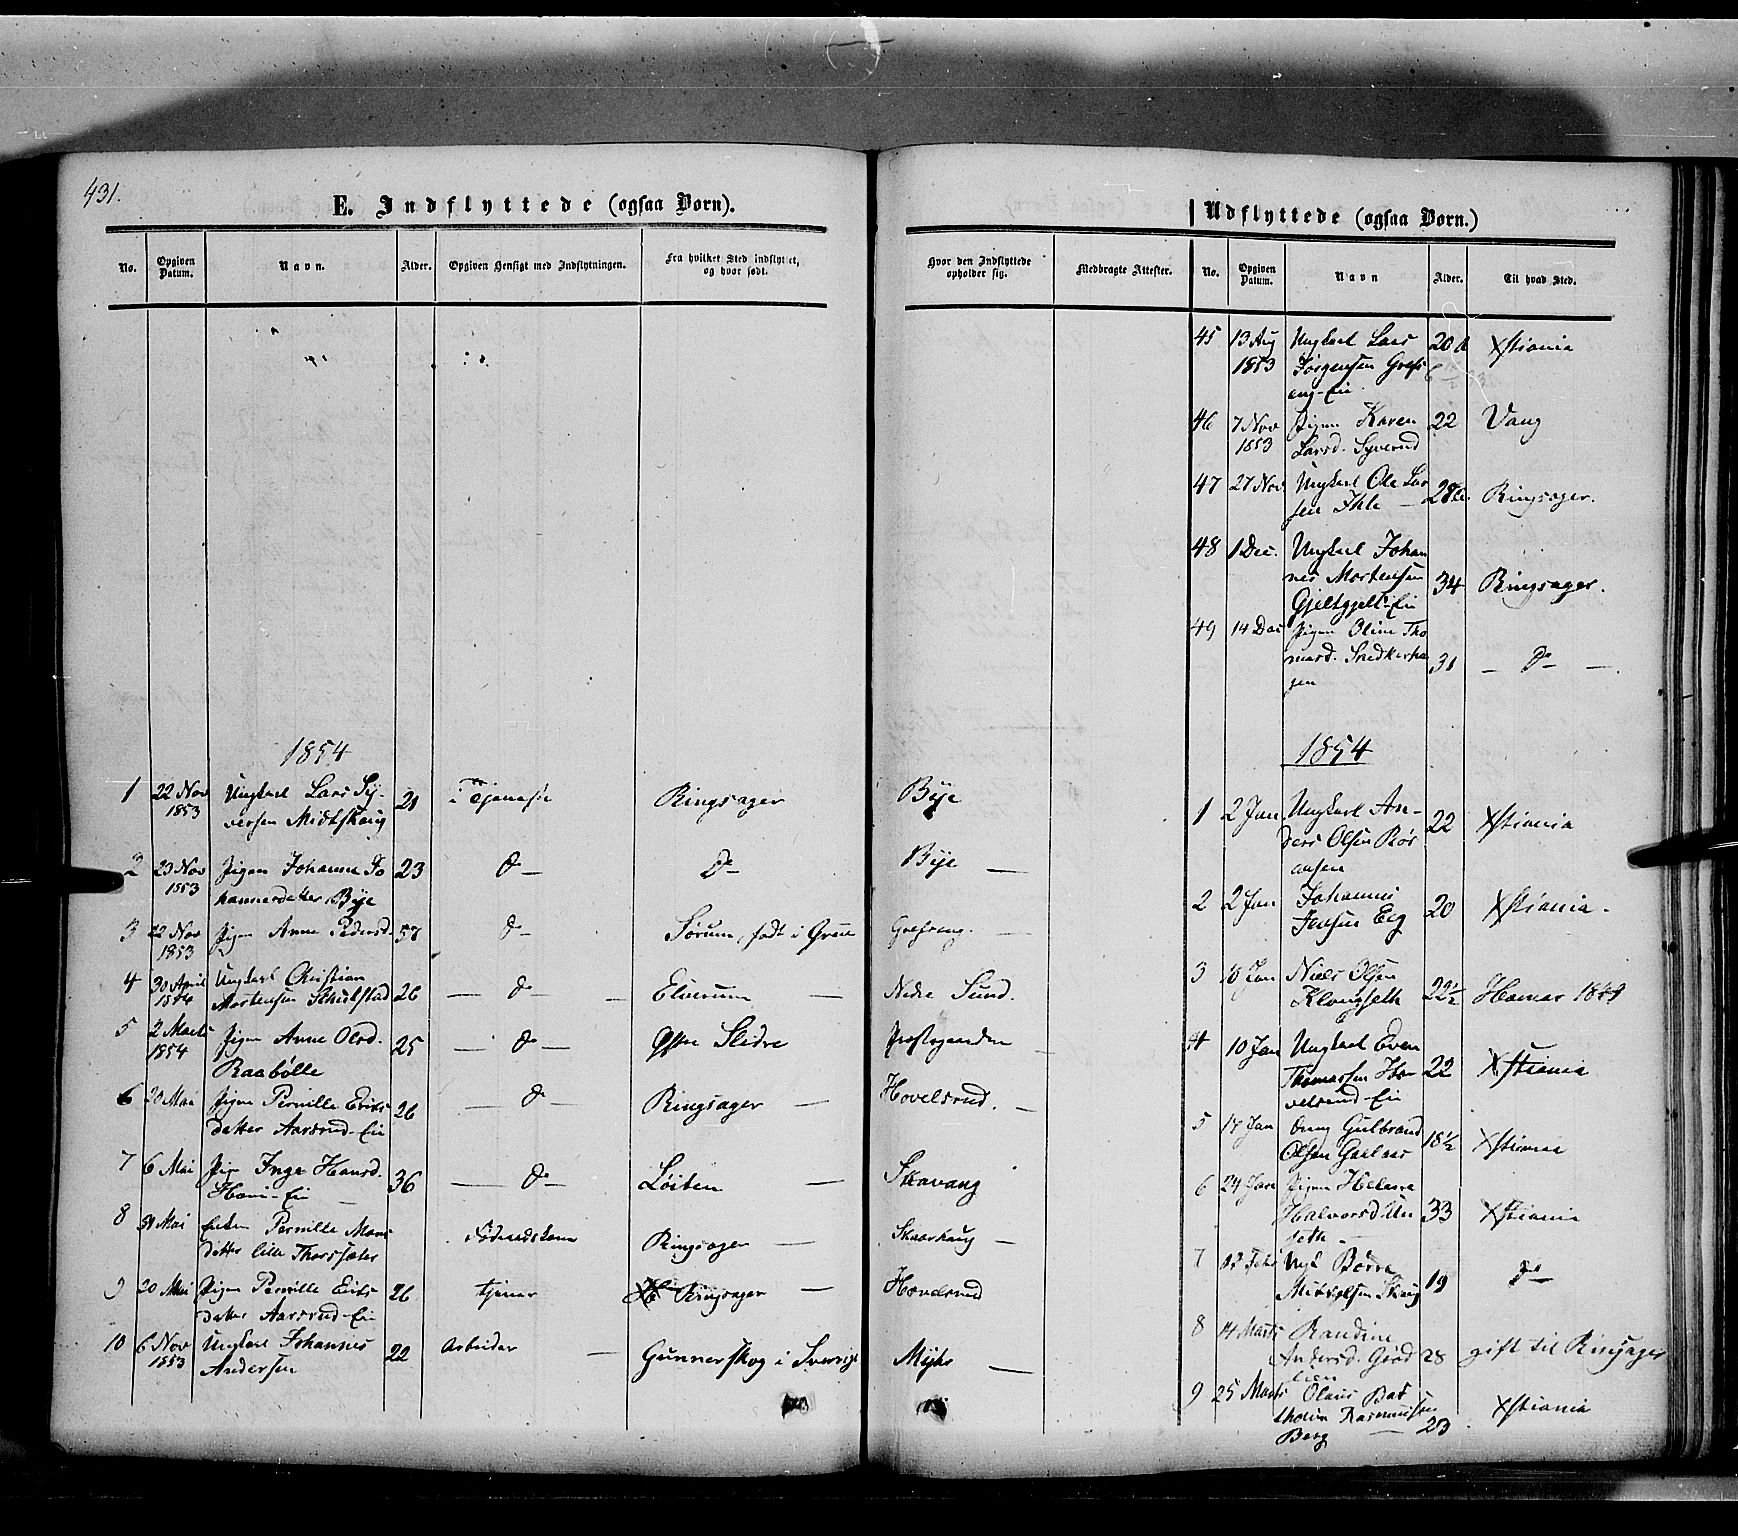 431.
E. Indflyttede (ogsaa Børn).
No. Opgiven Datum. Navn. Alder. Opgiven Hensigt med Indflytningen. Fra hvilket Sted indflyttet, og hvor født.
1854
1 22 Nov 1853 Ungkarl Lars Sy-
versen Midtskaug 21 i Tjeneste Ringsager
2 23 Nov 1853 Pigen Johanne Jo
hannesdatter Bye 23 do do
3 22 Nov 1853 Pigen Anne Pedersd. 57 do Sørum, født i
4 30 April Ungkarl Christian
Mortensen 26 do Elverum
5 2 Marts 1854 Pigen Anne Olsd.
Raabølle 25 do Østre Slidre
6 20 Mai Pigen Pernille Eriks
datter Aasrud-Eie 26 do Ringsager
7 6 Mai Pige Inge Hansd.
-Eie 36 do Løiten
8 Mai Enken Pernille
datter lille Thorsæter Ringsager
9 20 Mai Pigen Pernille Eriks
datter Aasrud-Eie 26 tjener Ringsager
10 6 Nov 1853 Ungkarl Johannes
Andersen 22 Arbeider Gunnerskog i Sverrige
Hvor den Indflyttede opholder sig. Medbragte Attester.
Bye
Bye
Grefseng
Nedre Sund.
Præstegaarden
Hovelsrud.
Skavang
Skaarhaug
Hovelsrud
Myhr
Udflyttede (ogsaa Børn.)
No. Opgiven Datum. Navn Alder. Til hvad Sted.
45 13 Aug 1853 Ungkarl Lars
Jørgensen Grefs
eng-Eie 20 Xstiania
46 7 Nov 1853 Pigen Karen
Larsd. Syverud 22 Vang
47 27 Nov Ungkarl Ole Lar
sen Ihle 28 Ringsager.
48 1 Dec. Ungkarl Johan
nes Mortensen
Gjeltgjelt-Eie 34 Ringsager.
49 14 Dec Pigen Oline Tho
masd. Snedkerha
gen 31 do
1854
1 2 Jan. Ungkarl An-
ders Olsen Rør
ansen 22 Xstiania
2 2 Jan Johannes
Jensen Eeg 20 Xstiania.
3 Jan Niels Olsen
Klongseth 22½ Hamar
4 10 Jan Ungkarl Even
Thomassen Ho
velsrud-Eie 22 Xstiania
5 Jan Gulbrand
Olsen 18½ Xstiania
6 24 Jan Pigen Helene
Halvorsd.
seth 33 Xstiania
7 Febr Ungk Børre
Mikkelsen 19 do
8 14 Marts Randine
Andersd. 28 gift til Ringsager
9 25 Marts Olaus Bat
Rasmussen
Berg 23 Xstiania